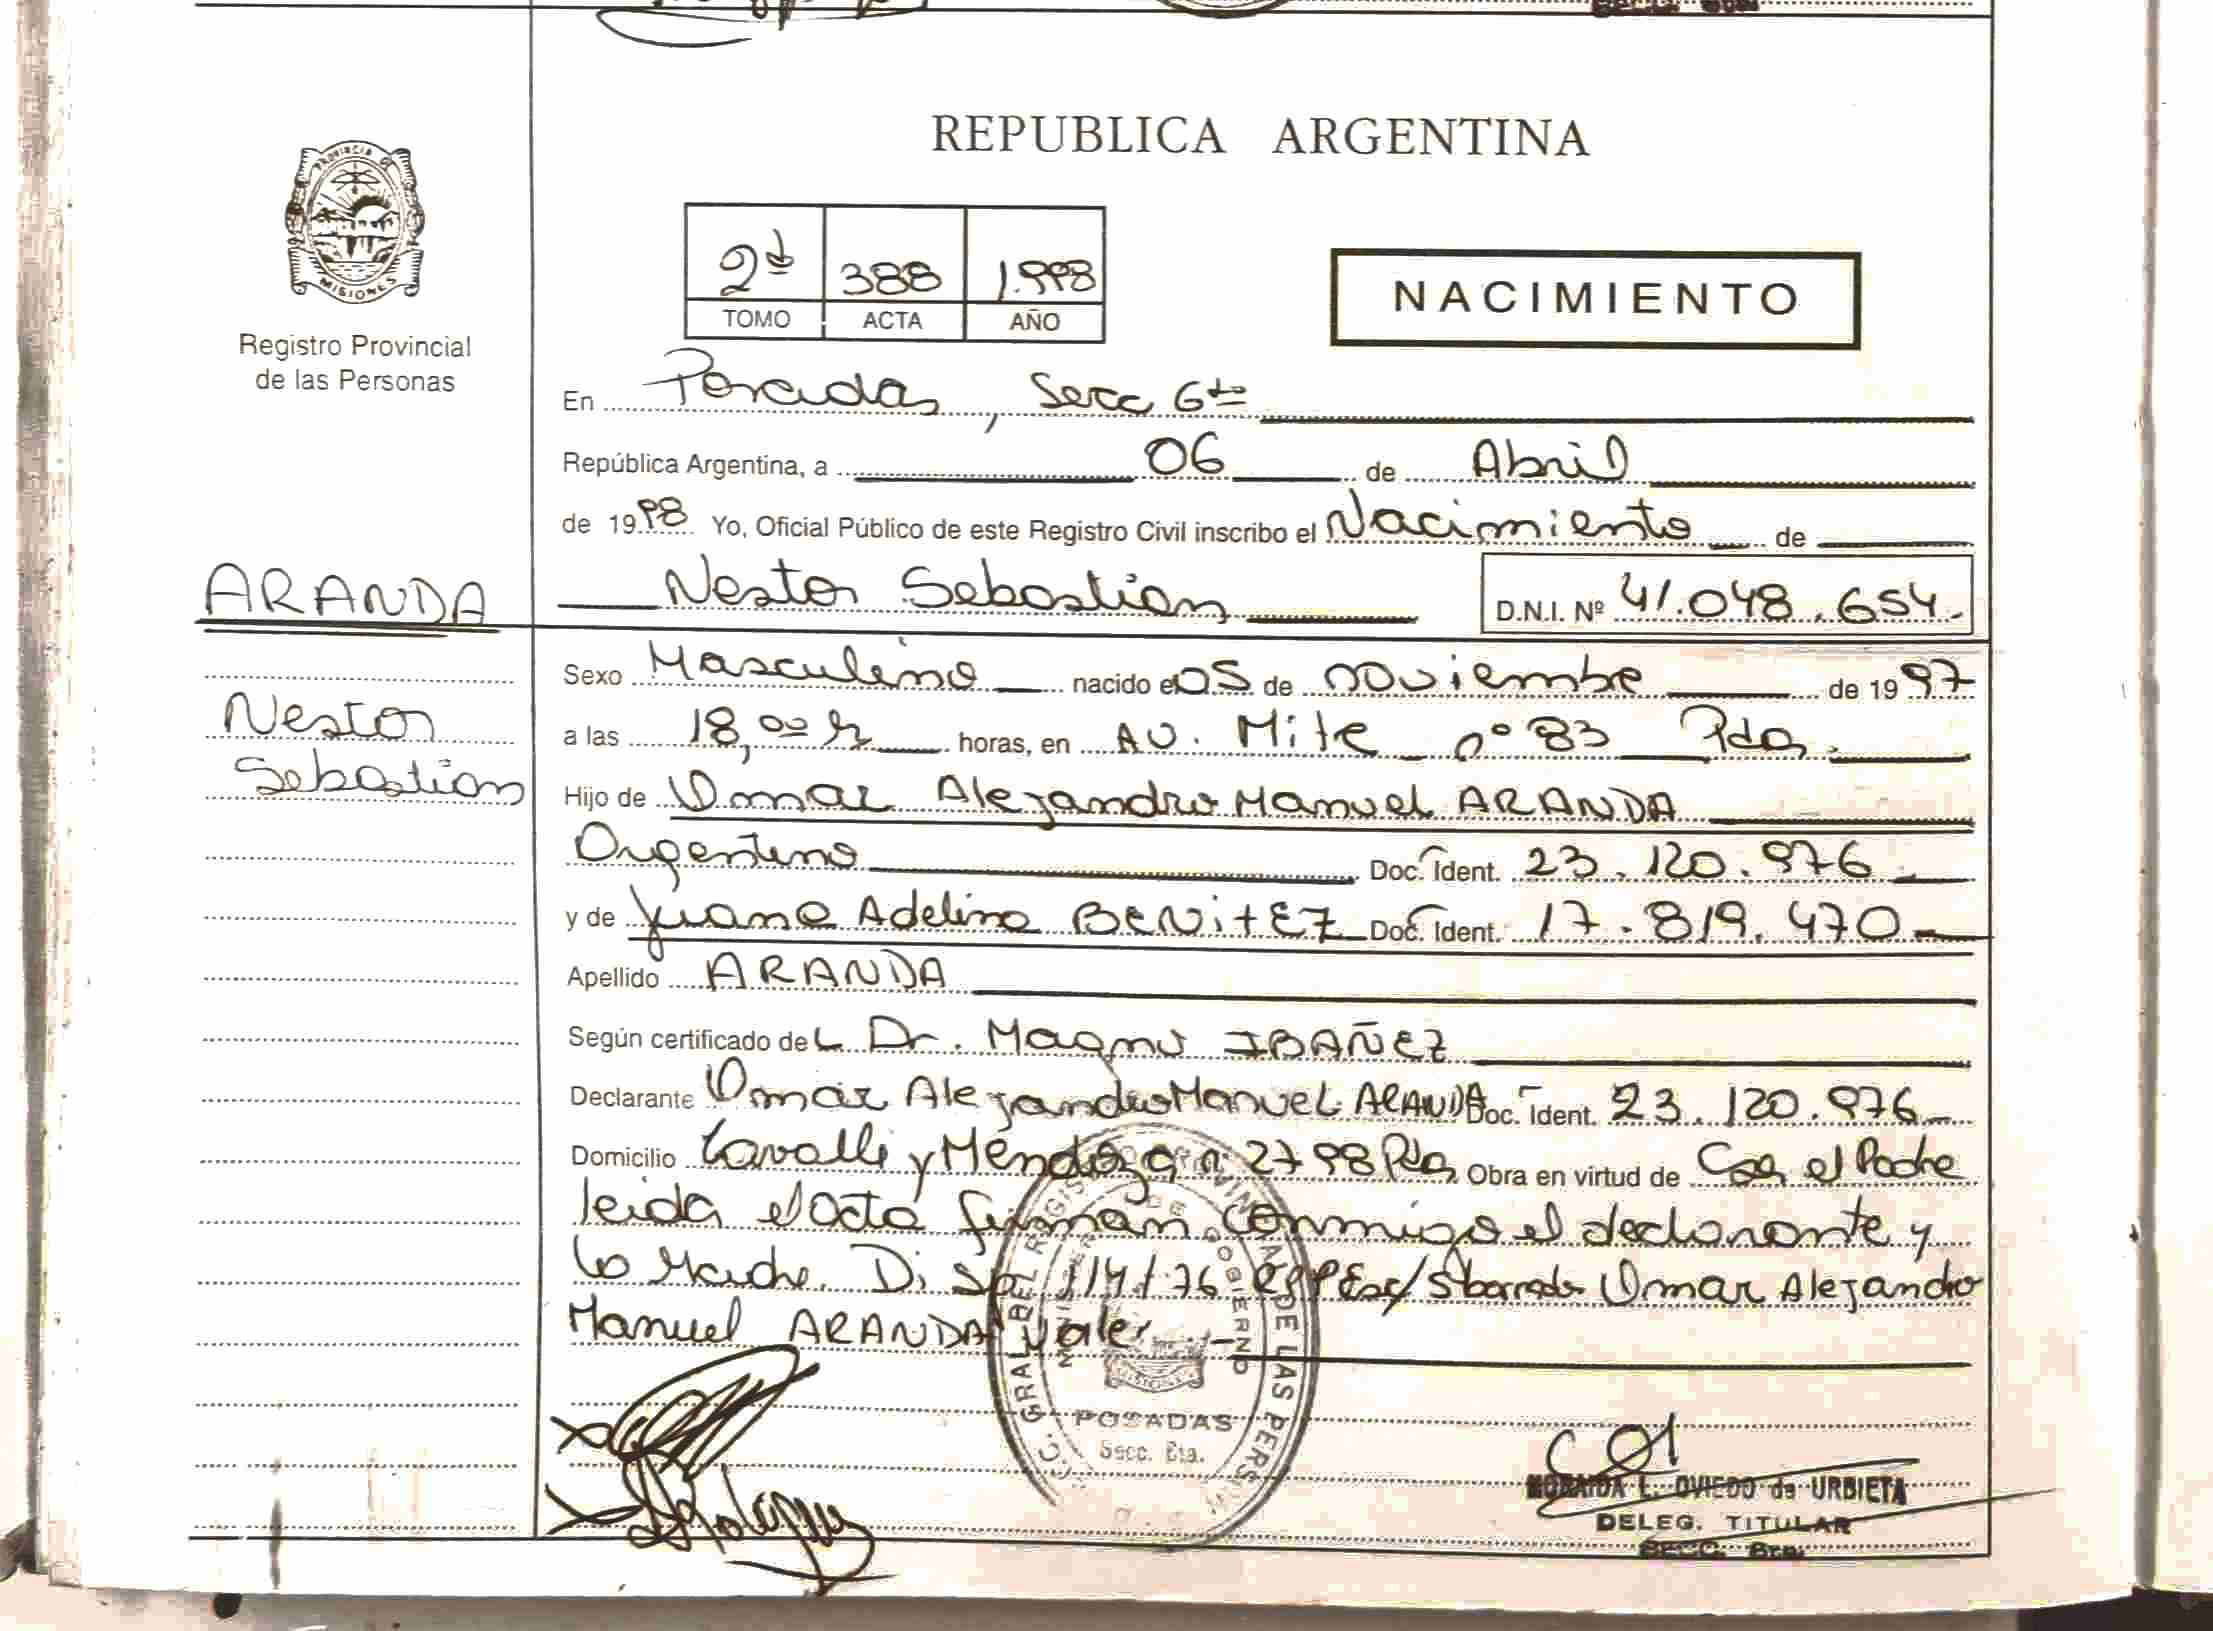 REPUBLICA ARGENTINA
PROVINCIA DE
MISIONES
Registro Provincial
de las Personas
2º 388 1.998
TOMO ACTA AÑO
NACIMIENTO
En Posadas, Secc 6ta
República Argentina, a 06 de Abril
de 1998 Yo, Oficial Público de este Registro Civil inscribo el Nacimiento de
ARANDA
Nestor Sebastian D.N.I. Nº 41.048.654.-
Nestor
Sebastian
Sexo Masculino nacido el 05 de noviembre de 1997
a las 18,00 h horas, en AV. Mite nº 83 Pdas.
Hijo de Omar Alejandro Manuel ARANDA
Argentino Doc. Ident. 23.120.976.-
y de Juana Adelina BENITEZ Doc. Ident. 17.819.470.-
Apellido ARANDA
Según certificado del Dr. Magno IBAÑEZ
Declarante Omar Alejandro Manuel ARANDA Doc. Ident. 23.120.976.-
Domicilio Cavalli y Mendoza nº 2798 Pdas Obra en virtud de Ser el Padre
leida el acta firman conmigo el declarante y
la Madre. Disp. 114/76 RPPEsc/ Sborrado Omar Alejandro
Manuel ARANDA Vale.
GRAL DEL REGISTRO PROVINCIAL DE LAS PERSONAS
MINISTERIO DE GOBIERNO
MISIONES
POSADAS
Secc. 6ta.
MORAIDA L. OVIEDO de URBIETA
DELEG. TITULAR
SECC. 6ta.